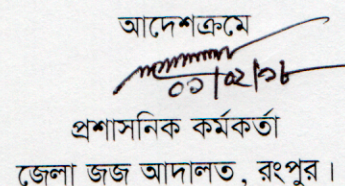 আদেশক্রমে
প্রশাসনিক কর্মকর্তা
জেলা জজ আদালত, রংপুর।